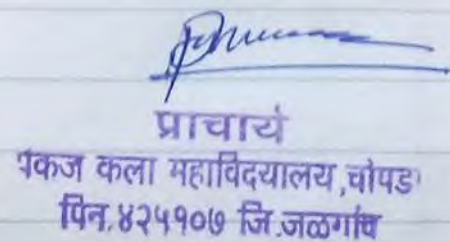 प्राचार्य
पंकज कला महाविदयालय,चोपडा
पिन.४२५१०७ जि.जळगांव